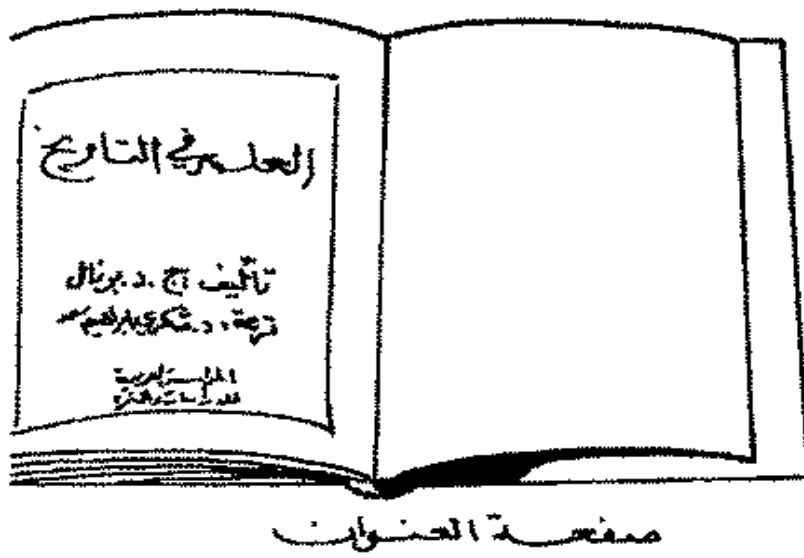 العلم في التاريخ
تأليف ج. د. برنال
ترجمة: د. شكري إبراهيم سعد
المؤسسة العربية
للدراسات والنشر
صفحة العنوان